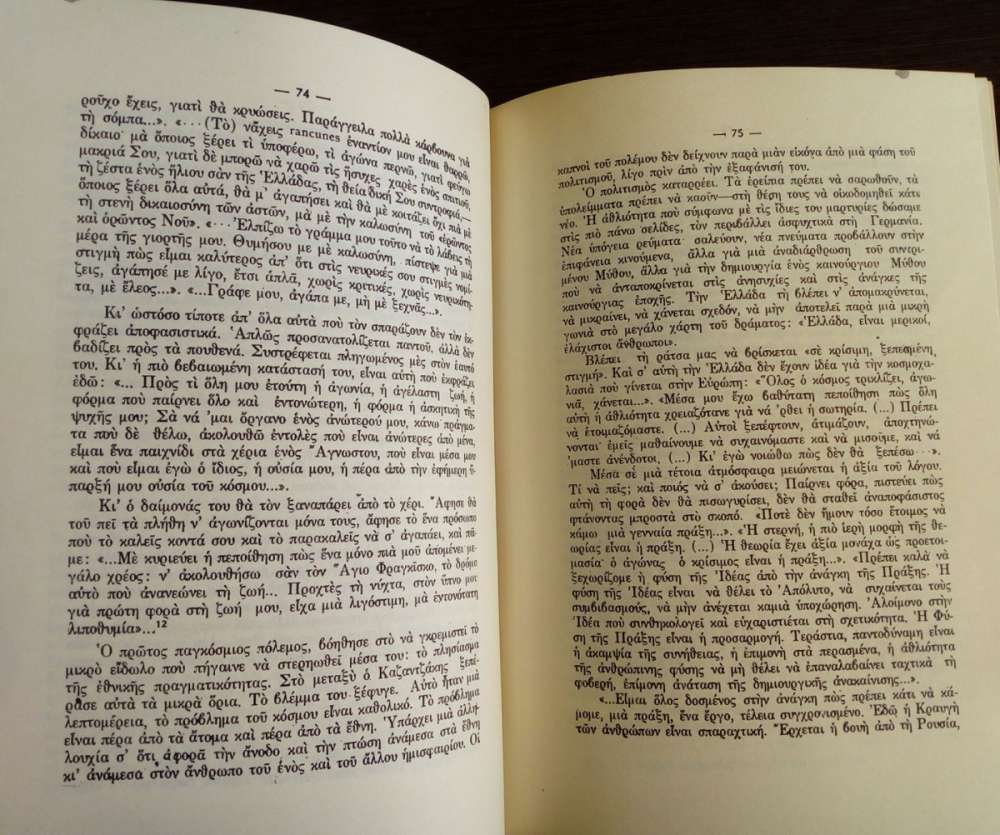 — 74 —
ροῦχο ἔχεις, γιατὶ θὰ κρυώσεις. Παράγγειλα πολλὰ κάρβουνα γιὰ
τὴ σόμπα...». «···(Τὸ) νἄχεις rancunes ἐναντίον μου εἶναι θαρρῶ,
δίκαιο· μὰ ὅποιος ξέρει τί ὑποφέρω, τί ἀγώνα περνῶ, γιατὶ φεύγω
μακριά Σου, γιατὶ δὲ μπορῶ νὰ χαρῶ τὶς ἥσυχες χαρὲς ἑνὸς σπιτιοῦ,
τὴ ζέστα ἑνὸς ἥλιου σὰν τῆς Ἑλλάδας, τὴ θεία δική Σου συντροφιά,—
ὅποιος ξέρει ὅλα αὐτά, θὰ μ' ἀγαπήσει καὶ θὰ μὲ κοιτάζει ὄχι πιὰ μὲ
τὴ στενὴ δικαιοσύνη τῶν ἀστῶν, μὰ μὲ τὴν καλωσύνη τοῦ «ἐρῶντος
καὶ ὁρῶντος Νοῦ». «···Ἐλπίζω τὸ γράμμα μου τοῦτο νὰ τὸ λάβεις τὴ
μέρα τῆς γιορτῆς μου. Θυμήσου με μὲ καλωσύνη, πίστεψε γιὰ μιὰ
στιγμὴ πὼς εἶμαι καλύτερος ἀπ' ὅτι στὶς νευρικές σου στιγμὲς νομί-
ζεις, ἀγάπησέ με λίγο, ἔτσι ἁπλά, χωρὶς κριτικές, χωρὶς νευρικότη-
τα, μὲ ἔλεος...» «...Γράφε μου, ἀγάπα με, μὴ μὲ ξεχνᾶς...».
Κι' ὡστόσο τίποτε ἀπ' ὅλα αὐτὰ ποὺ τὸν σπαράζουν δὲν τὸν ἐκ-
φράζει ἀποφασιστικά. Ἁπλῶς προσανατολίζεται παντοῦ, ἀλλὰ δὲν
βαδίζει πρὸς τὰ πουθενά. Συστρέφεται πληγωμένος μὲς στὸν ἑαυτό
του. Κι' ἡ πιὸ βεβαιωμένη κατάστασή του, εἶναι αὐτὴ ποὺ ἐκφράζει
ἐδῶ: «... Πρὸς τί ὅλη μου ἐτούτη ἡ ἀγωνία, ἡ ἀγέλαστη ζωή, ἡ
φόρμα ποὺ παίρνει ὅλο καὶ ἐντονώτερη, ἡ φόρμα ἡ ἀσκητικὴ τῆς
ψυχῆς μου; Σὰ νά 'μαι ὄργανο ἑνὸς ἀνώτερού μου, κάνω πράγμα-
τα ποὺ δὲ θέλω, ἀκολουθῶ ἐντολὲς ποὺ εἶναι ἀνώτερες ἀπὸ μένα,
εἶμαι ἕνα παιχνίδι στὰ χέρια ἑνὸς Ἄγνωστου, ποὺ εἶναι μέσα μου
καὶ ποὺ εἶμαι ἐγὼ ὁ ἴδιος, ἡ οὐσία μου, ἡ πέρα ἀπὸ τὴν ἐφήμερη ὕ-
παρξή μου οὐσία τοῦ κόσμου...».
Κι' ὁ δαίμονάς του θὰ τὸν ξαναπάρει ἀπὸ τὸ χέρι. Ἄφησὲ θὰ
τοῦ πεῖ τὰ πλήθη ν' ἀγωνίζονται μόνα τους, ἄφησε τὸ ἕνα πρόσωπο
ποὺ τὸ καλεῖς κοντά σου καὶ τὸ παρακαλεῖς νὰ σ' ἀγαπάει, καὶ πᾶ-
με: «...Μὲ κυριεύει ἡ πεποίθηση πὼς ἕνα μόνο πιὰ μοῦ ἀπομένει με-
γάλο χρέος: ν' ἀκολουθήσω σὰν τὸν Ἅγιο Φραγκίσκο, τὸ δρόμο
αὐτὸ ποὺ ἀνανεώνει τὴ ζωή... Προχτὲς τὴ νύχτα, στὸν ὕπνο μου
γιὰ πρώτη φορὰ στὴ ζωή μου, εἶχα μιὰ λιγόστιμη, μὰ ἐντονότατη
λιποθυμία»...¹²
Ὁ πρῶτος παγκόσμιος πόλεμος, βόηθησε στὸ νὰ γκρεμιστεῖ τὸ
μικρὸ εἴδωλο ποὺ πήγαινε νὰ στερηωθεῖ μέσα του: τὸ πλησίασμα
τῆς ἐθνικῆς πραγματικότητας. Στὸ μεταξὺ ὁ Καζαντζάκης ξεπέ-
ρασε αὐτὰ τὰ μικρὰ ὅρια. Τὸ βλέμμα του ξέφυγε. Αὐτὸ ἦταν μιὰ
λεπτομέρεια, τὸ πρόβλημα τοῦ κόσμου εἶναι καθολικό. Τὸ πρόβλημα
εἶναι πέρα ἀπὸ τὰ ἄτομα καὶ πέρα ἀπὸ τὰ ἔθνη. Ὑπάρχει μιὰ ἀλλη-
λουχία σ' ὅτι ἀφορᾶ τὴν ἄνοδο καὶ τὴν πτώση ἀνάμεσα στὰ ἔθνη
κι' ἀνάμεσα στὸν ἄνθρωπο τοῦ ἑνὸς καὶ τοῦ ἄλλου ἡμισφαιρίου. Οἱ
— 75 —
καπνοὶ τοῦ πολέμου δὲν δείχνουν παρὰ μιὰν εἰκόνα ἀπὸ μιὰ φάση τοῦ
πολιτισμοῦ, λίγο πρὶν ἀπὸ τὴν ἐξαφάνισή του.
Ὁ πολιτισμὸς καταρρέει. Τὰ ἐρείπια πρέπει νὰ σαρωθοῦν, τὰ
ὑπολείμματα πρέπει νὰ καοῦν—στὴ θέση τους νὰ οἰκοδομηθεῖ κάτι
νέο. Ἡ ἀθλιότητα ποὺ σύμφωνα μὲ τὶς ἴδιες του μαρτυρίες δώσαμε
στὶς πιὸ πάνω σελίδες, τὸν περιβάλλει ἀσφυχτικὰ στὴ Γερμανία.
Νέα ὑπόγεια ρεύματα σαλεύουν, νέα πνεύματα προβάλλουν στὴν
ἐπιφάνεια κινούμενα, ἄλλα γιὰ μιὰ ἀναδιάρθρωση τοῦ συντρι-
μένου Μύθου, ἄλλα γιὰ τὴν δημιουργία ἑνὸς καινούργιου Μύθου
ποὺ νὰ ἀνταποκρίνεται στὶς ἀνησυχίες καὶ στὶς ἀνάγκες τῆς
καινούργιας ἐποχῆς. Τὴν Ἑλλάδα τὴ βλέπει ν' ἀπομακρύνεται,
νὰ μικραίνει, νὰ χάνεται σχεδόν, νὰ μὴν ἀποτελεῖ παρὰ μιὰ μικρὴ
γωνιὰ στὸ μεγάλο χάρτη τοῦ δράματος: «Ἑλλάδα, εἶναι μερικοί,
ἐλάχιστοι ἄνθρωποι».
Βλέπει τὴ ράτσα μας νὰ βρίσκεται «σὲ κρίσιμη, ξεπεσμένη
στιγμή». Καὶ σ' αὐτὴ τὴν Ἑλλάδα δὲν ἔχουν ἰδέα γιὰ τὴν κοσμοχα-
λασιὰ ποὺ γίνεται στὴν Εὐρώπη: «Ὅλος ὁ κόσμος τρικλίζει, ἀγω-
νιᾶ, χάνεται...». «Μέσα μου ἔχω βαθύτατη πεποίθηση πὼς ὅλη
αὐτὴ ἡ ἀθλιότητα χρειαζότανε γιὰ νά 'ρθει ἡ σωτηρία. (...) Πρέπει
νὰ ἑτοιμαζόμαστε. (...) Αὐτοὶ ξεπέφτουν, ἀτιμάζουν, ἀποχτηνώ-
νονται· ἐμεῖς μαθαίνουμε νὰ συχαινόμαστε καὶ νὰ μισοῦμε, καὶ νά
'μαστε ἀνένδοτοι. (...) Κι' ἐγὼ νοιώθω πὼς δὲν θὰ ξεπέσω···».
Μέσα σὲ μιὰ τέτοια ἀτμόσφαιρα μειώνεται ἡ ἀξία τοῦ λόγου.
Τί νὰ πεῖς; καὶ ποιὸς νὰ σ' ἀκούσει; Παίρνει φόρα, πιστεύει πὼς
αὐτὴ τὴ φορὰ δὲν θὰ πισωγυρίσει, δὲν θὰ σταθεῖ ἀναποφάσιστος
φτάνοντας μπροστὰ στὸ σκοπό. «Ποτὲ δὲν ἤμουν τόσο ἕτοιμος νὰ
κάμω μιὰ γενναία πράξη...». «Ἡ στερνή, ἡ πιὸ ἱερὴ μορφὴ τῆς θε-
ωρίας εἶναι ἡ πράξη. (...) Ἡ θεωρία ἔχει ἀξία μονάχα ὡς προετοι-
μασία· ὁ ἀγώνας ὁ κρίσιμος εἶναι ἡ πράξη...». «Πρέπει καλὰ νὰ
ξεχωρίζομε ἡ φύση τῆς Ἰδέας ἀπὸ τὴν ἀνάγκη τῆς Πράξης. Ἡ
φύση τῆς Ἰδέας εἶναι νὰ θέλει τὸ Ἀπόλυτο, νὰ συχαίνεται τοὺς
συμβιβασμούς, νὰ μὴν ἀνέχεται καμιὰ ὑποχώρηση. Ἀλοίμονο στὴν
Ἰδέα ποὺ συνθηκολογεῖ καὶ εὐχαριστιέται στὴ σχετικότητα. Ἡ Φύ-
ση τῆς Πράξης εἶναι ἡ προσαρμογή. Τεράστια, παντοδύναμη εἶναι
ἡ ἀκαμψία τῆς συνήθειας, ἡ ἐπιμονὴ στὰ περασμένα, ἡ ἀθλιότητα
τῆς ἀνθρώπινης φύσης νὰ μὴ θέλει νὰ ἐπαναλαβαίνει ταχτικὰ τὴ
φοβερή, ἐπίμονη ἀνάταση τῆς δημιουργικῆς ἀνακαίνισης...».
«...Εἶμαι ὅλος δοσμένος στὴν ἀνάγκη πὼς πρέπει κάτι νὰ κά-
μομε, μιὰ πράξη, ἕνα ἔργο, τέλεια συγχρονισμένο. Ἐδῶ ἡ Κραυγὴ
τῶν ἀνθρώπων εἶναι σπαραχτική. Ἔρχεται ἡ βουὴ ἀπὸ τὴ Ρουσία,